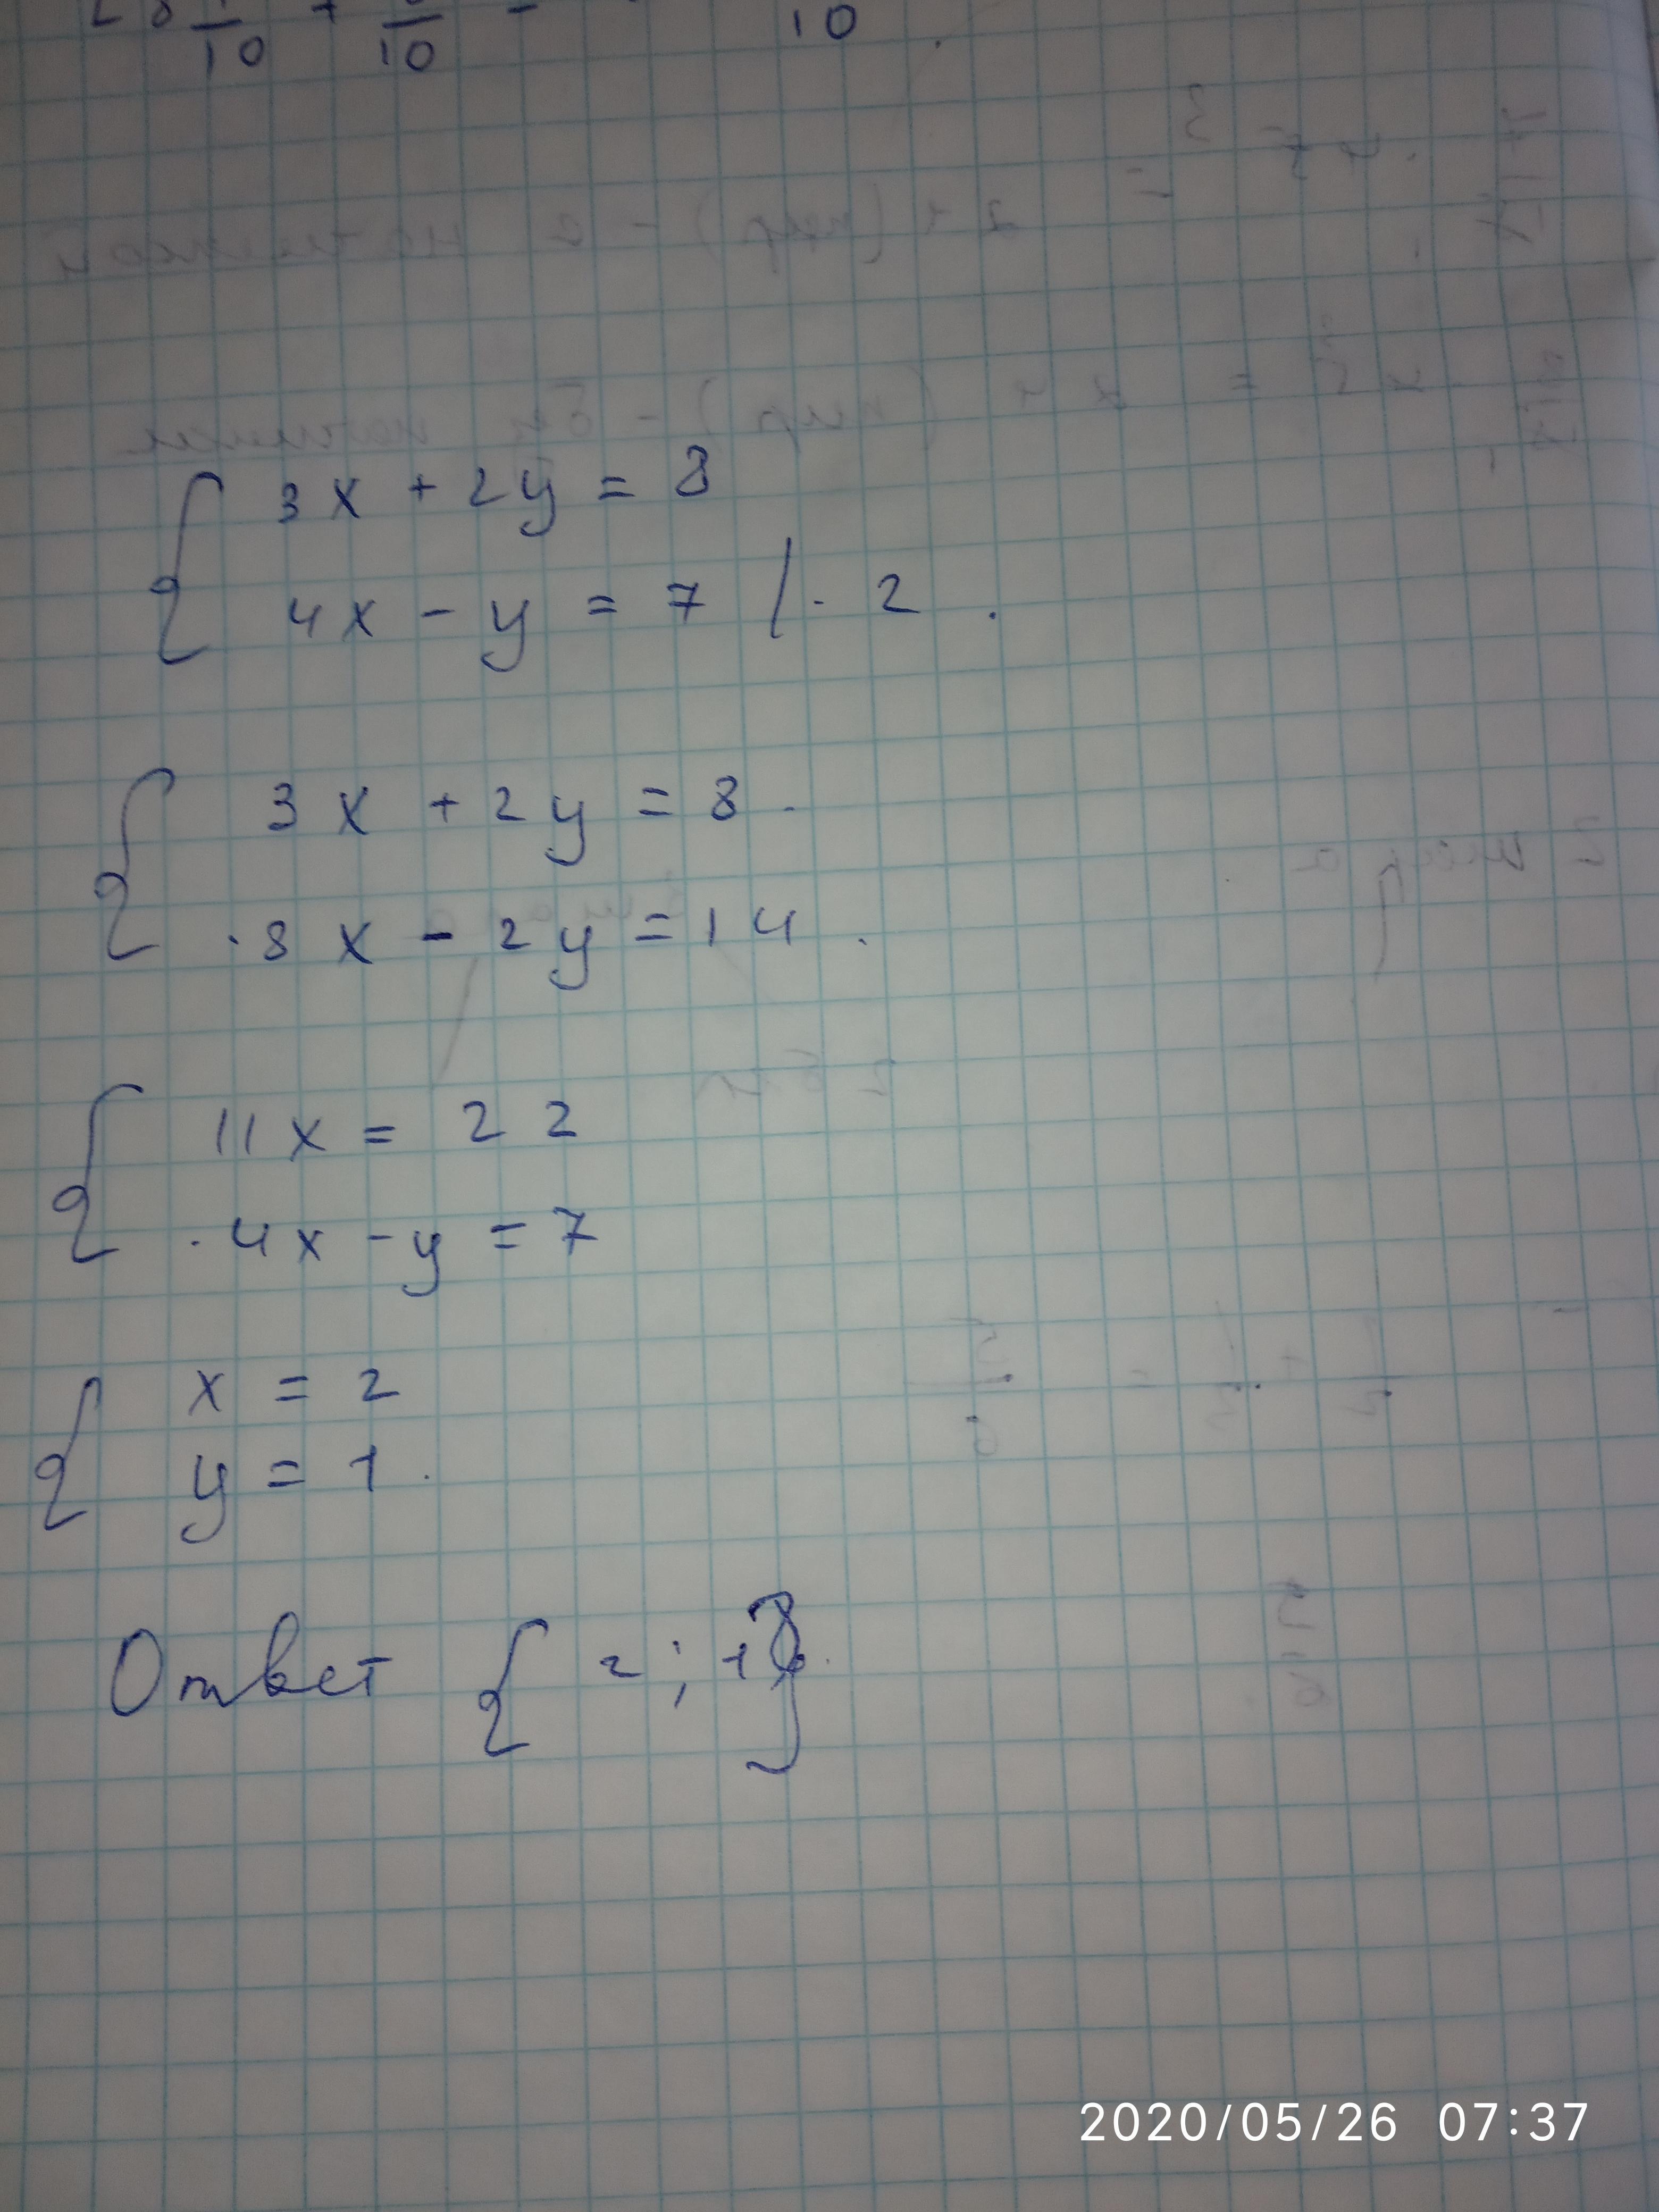 10 + 10 - 10
3x + 2y = 8
4x - y = 7 / · 2
3x + 2y = 8
8x - 2y = 14
11x = 22
4x - y = 7
x = 2
y = 1
Ответ { 2 ; 1 }
2020/05/26 07:37